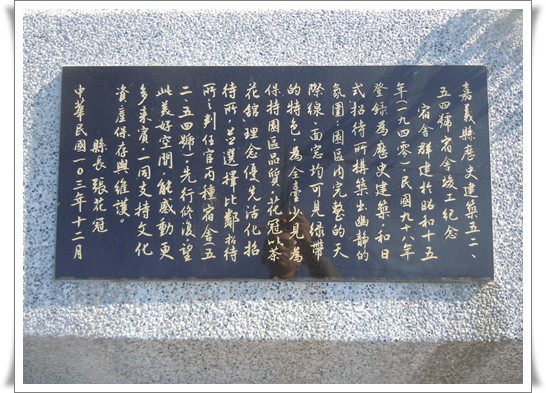 嘉義縣歷史建築五二、
五四號宿舍竣工紀念
宿舍群建於昭和十五
年(一九四零)，民國九十八年
登錄為歷史建築，和日
式招待所構築出幽靜的
氛圍，園區內完整的天
際線，面窗均可見綠帶
的特色，為全臺少見，為
保持園區品質，花冠以茶
花館理念優先活化招
待所，並選擇比鄰招待
所之判任官丙種宿舍(五
二、五四號)先行修復，望
此美好空間，能感動更
多來賓，一同支持文化
資產保存與維護。
縣長 張花冠
中華民國一〇三年十二月